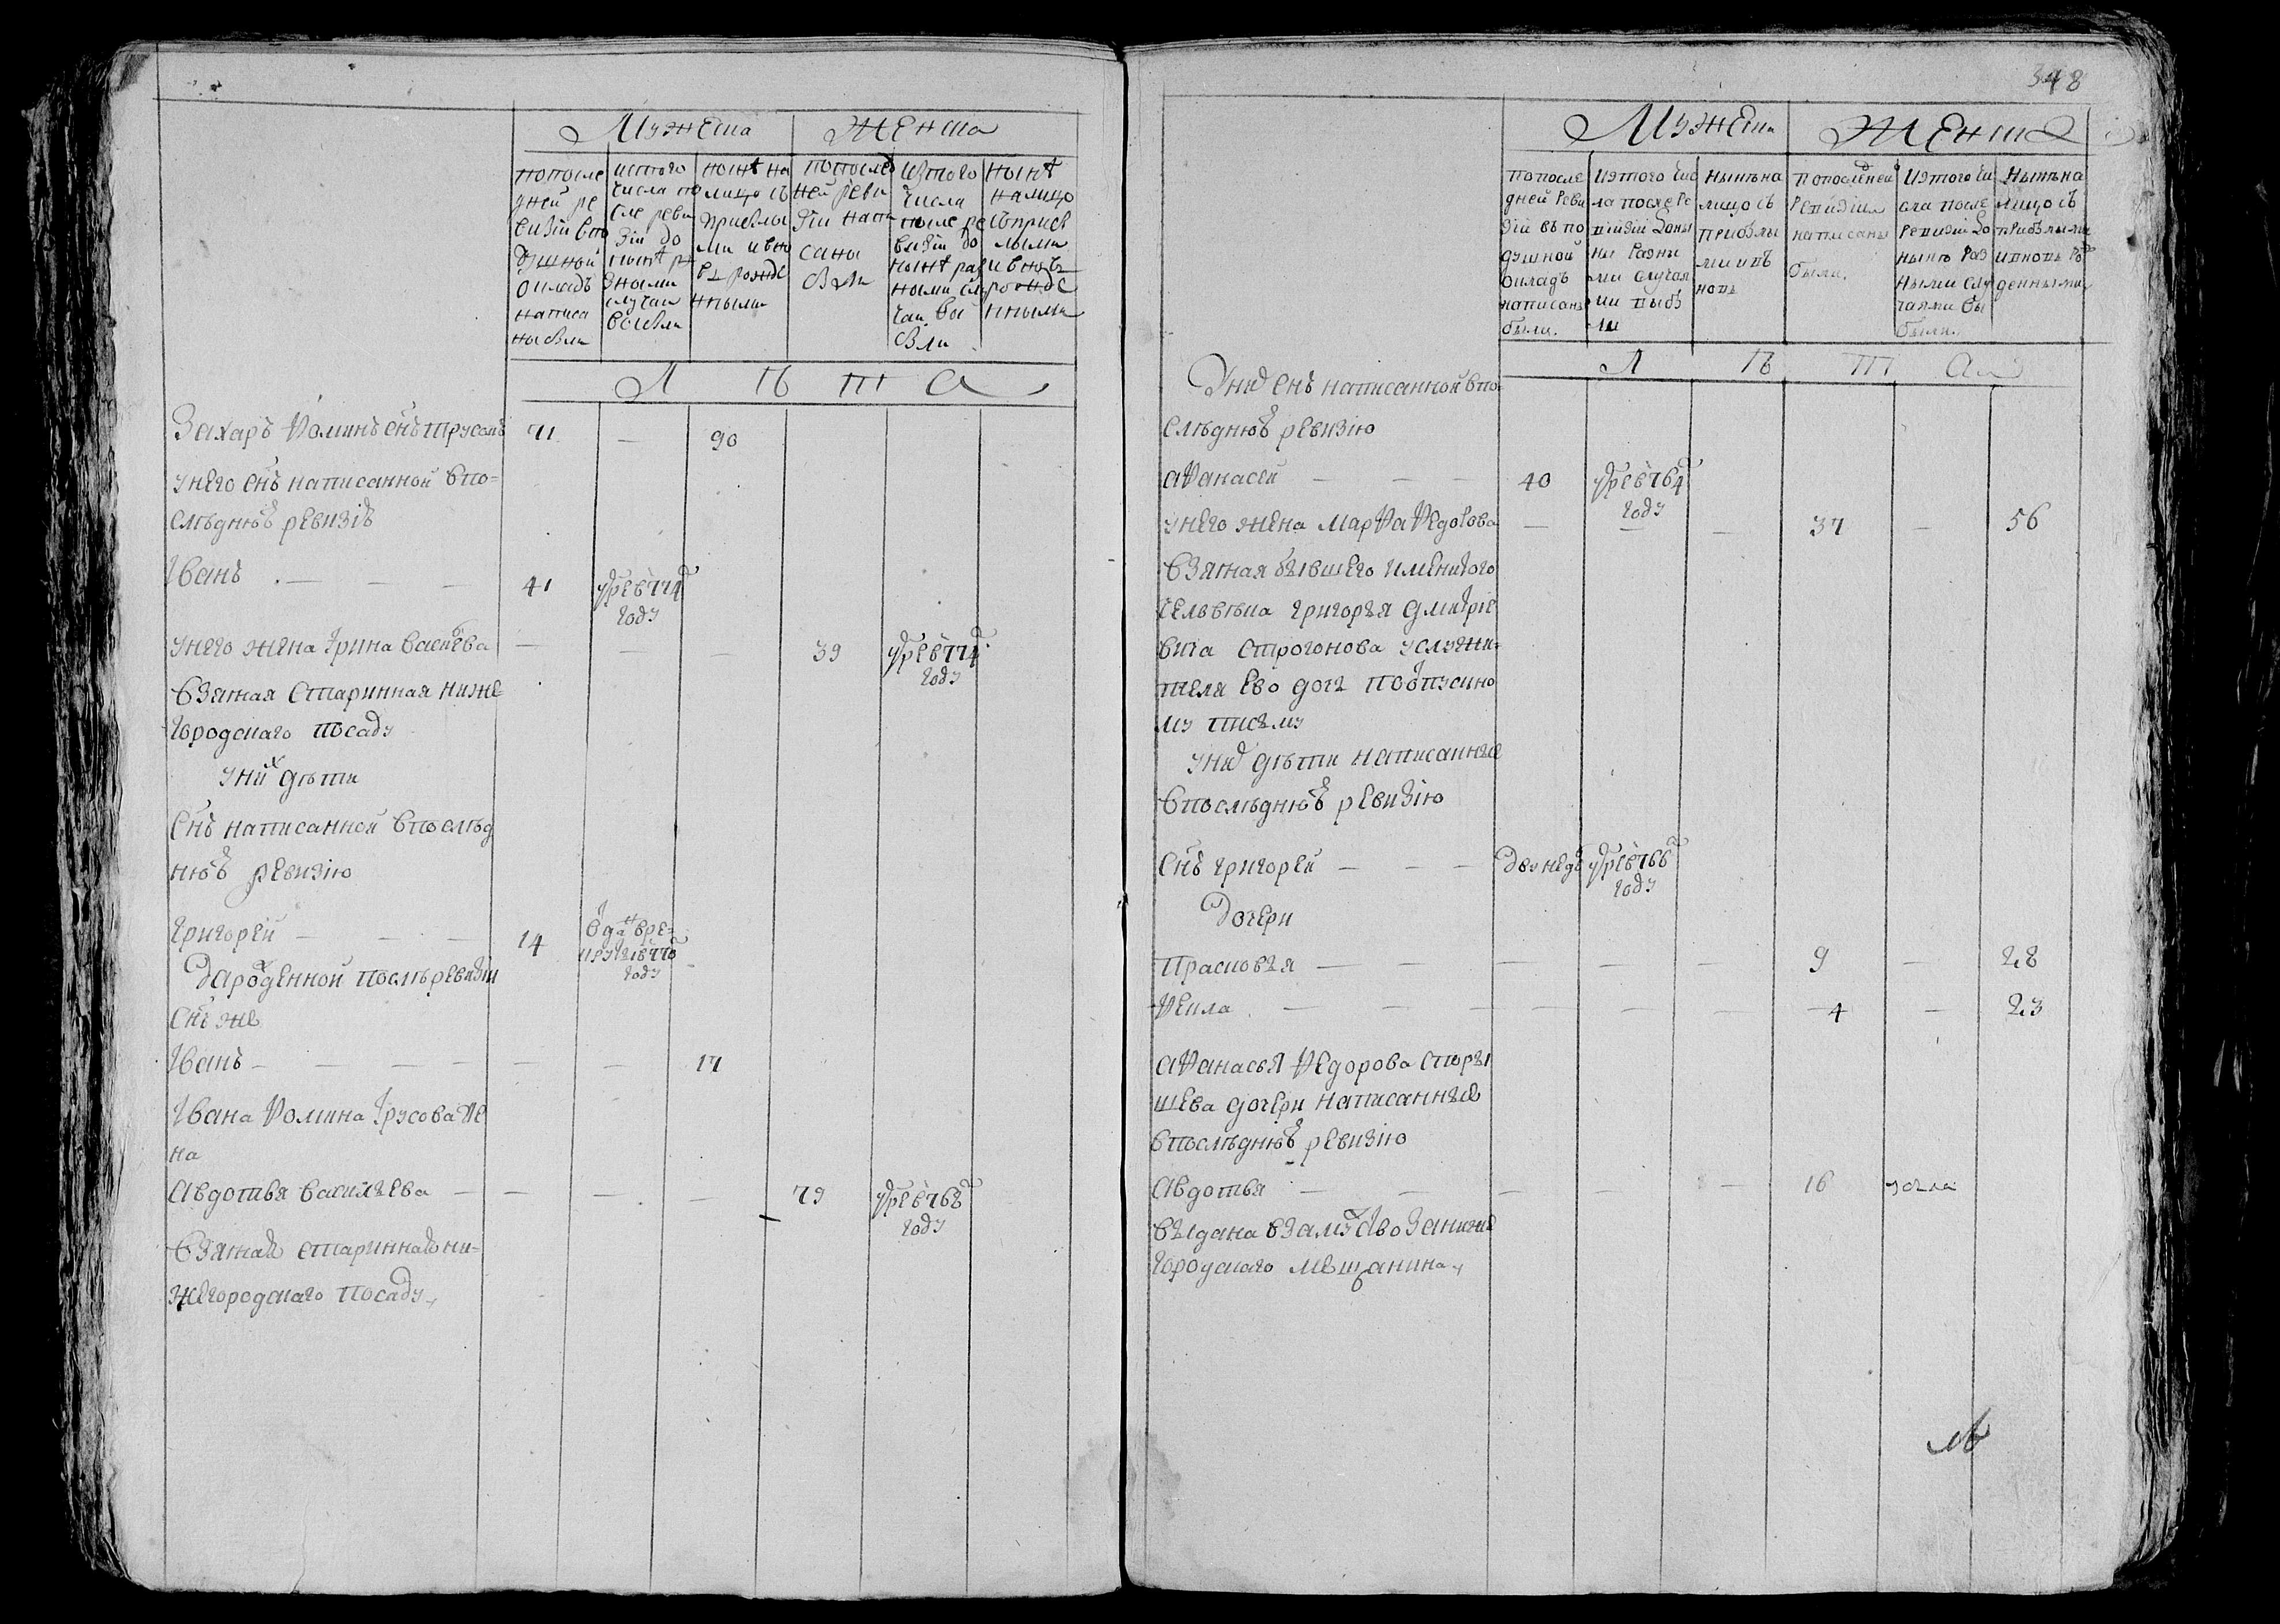 348
Мужеска
Женска
попосле
дней ре
визіи впо
душной
окладъ
написа
ны были
истого
числа по
сле реви
зіи до
нынѣ ра
зными
случаи
выбыли
нынѣ на
лицо съ
прибылы
ми и вно
вь рожде
нными
попослед
ней реви
зіи напи
саны
были
изтого
числа
после ре
визіи до
нынѣ раз
ными слу
чаи вы
были
нынѣ
налицо
съприбы
лыми
ивновь
рожде
нными
Л Ѣ Т А
Захаръ Ѳоминъ снъ Трусовъ 71 — 90
унего снъ написанной впо-
слѣднюю ревизію
Іванъ — — — 41 умре в 774
году
унего жена Ірина Васильева — — — 39 умре в 774
году
взятая старинная ниже
городскаго посаду
уних дѣти
Снъ написанной впослѣд
нюю ревизію
Григорей — — — 14 Одан вре-
круты в 770
году
Дарожденной послѣ ревизіи
снъ же
Іванъ — — — — — — 17
Івана Ѳомина Трусова же
на
Авдотья Васильева — — — — 79 умре в 768
году
взятая стариннаго ни-
жегородскаго посаду
Мужеска
Женска
попосле
дней реви
зіи въ по
душной
окладъ
написаны
были.
изтого чис
ла после ре
визіи доны
не разны
ми случая
ми выбы
ли
нынѣ на
лицо съ
прибылы
ми ивъ
новь
попоследней
ревизіи
написаны
были.
изтого чи
сла после
ревизіи до
нынѣ раз
ными слу
чаями вы
были.
нынѣ на
лицо съ
прибылыми
ивновь рож
денными
Л Ѣ Т А
Уних снъ написанной впо
слѣднюю ревизію
Аѳанасей — — — 40 умре в 764
году
унего жена Марѳа Ѳедотова — — — 37 — 56
взятая бывшего именитого
человѣка Григорья Дмитріе
вича Строгонова услужи-
теля ево дочь поотпускно
му писму
уних дѣти написанные
впослѣднюю ревизію
Снъ Григорей — — — Двунедѣ умре в 766
году
Дочери
Прасковья — — — — — 9 — 28
Ѳекла — — — — — — 4 — 23
Аѳанасья Ѳедорова
шева дочери написанные
впослѣднюю ревизію
Авдотья — — — — — 16
выдана взамужство Занижне
городскаго мѣщанина